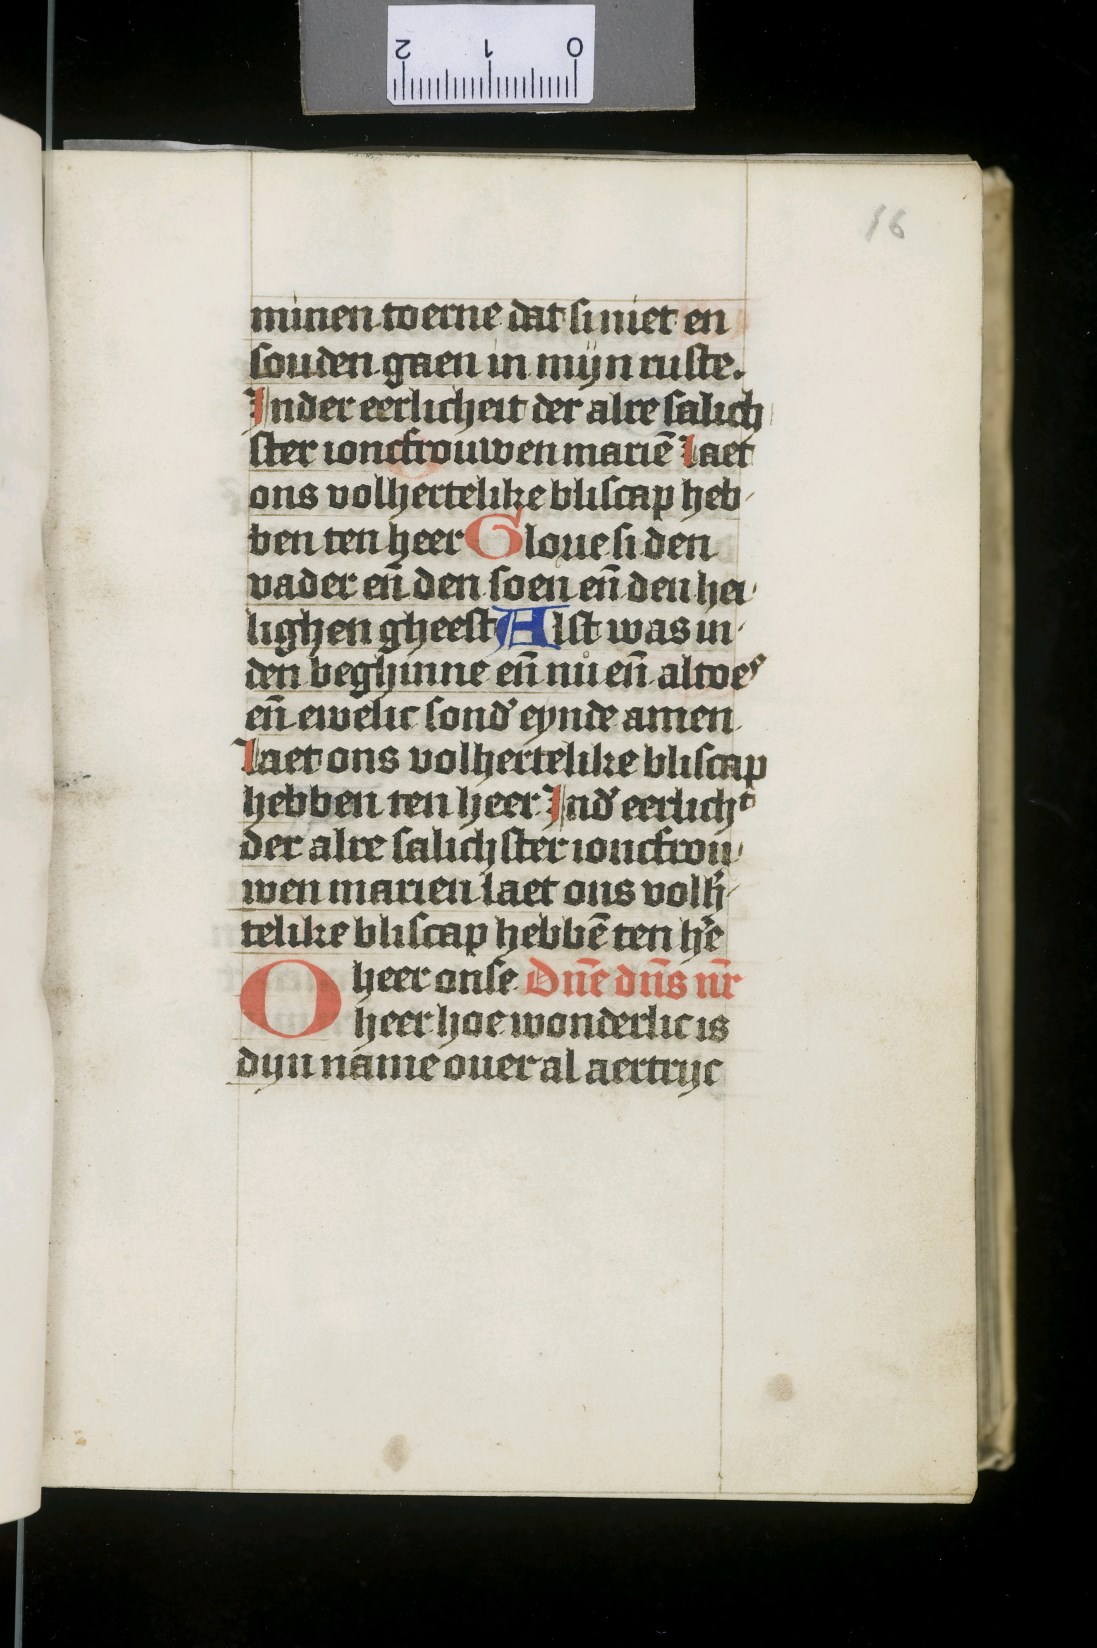 2 1 0
16
minen toerne dat si niet en
souden gaen in mijn ruste.
Inder eerlicheit der alre salich
ster ioncfrouwen mariē laet
ons volhertelike bliscap heb
ben ten heer Gloue si den
vader eñ den soen eñ den hei
lighen gheest Alst was in
den beghinne eñ nu eñ altoeˢ
eñ ewelic sond' eynde amen
laet ons volhertelike bliscap
hebben ten heer Ind' eerlichᵗ
der alre salichster ioncfrou
wen marien laet ons volh'
telike bliscap hebbē ten h'e
O heer onse Dn̄e dn̄s nr̄
heer hoe wonderlic is
dijn name ouer al aertrijc